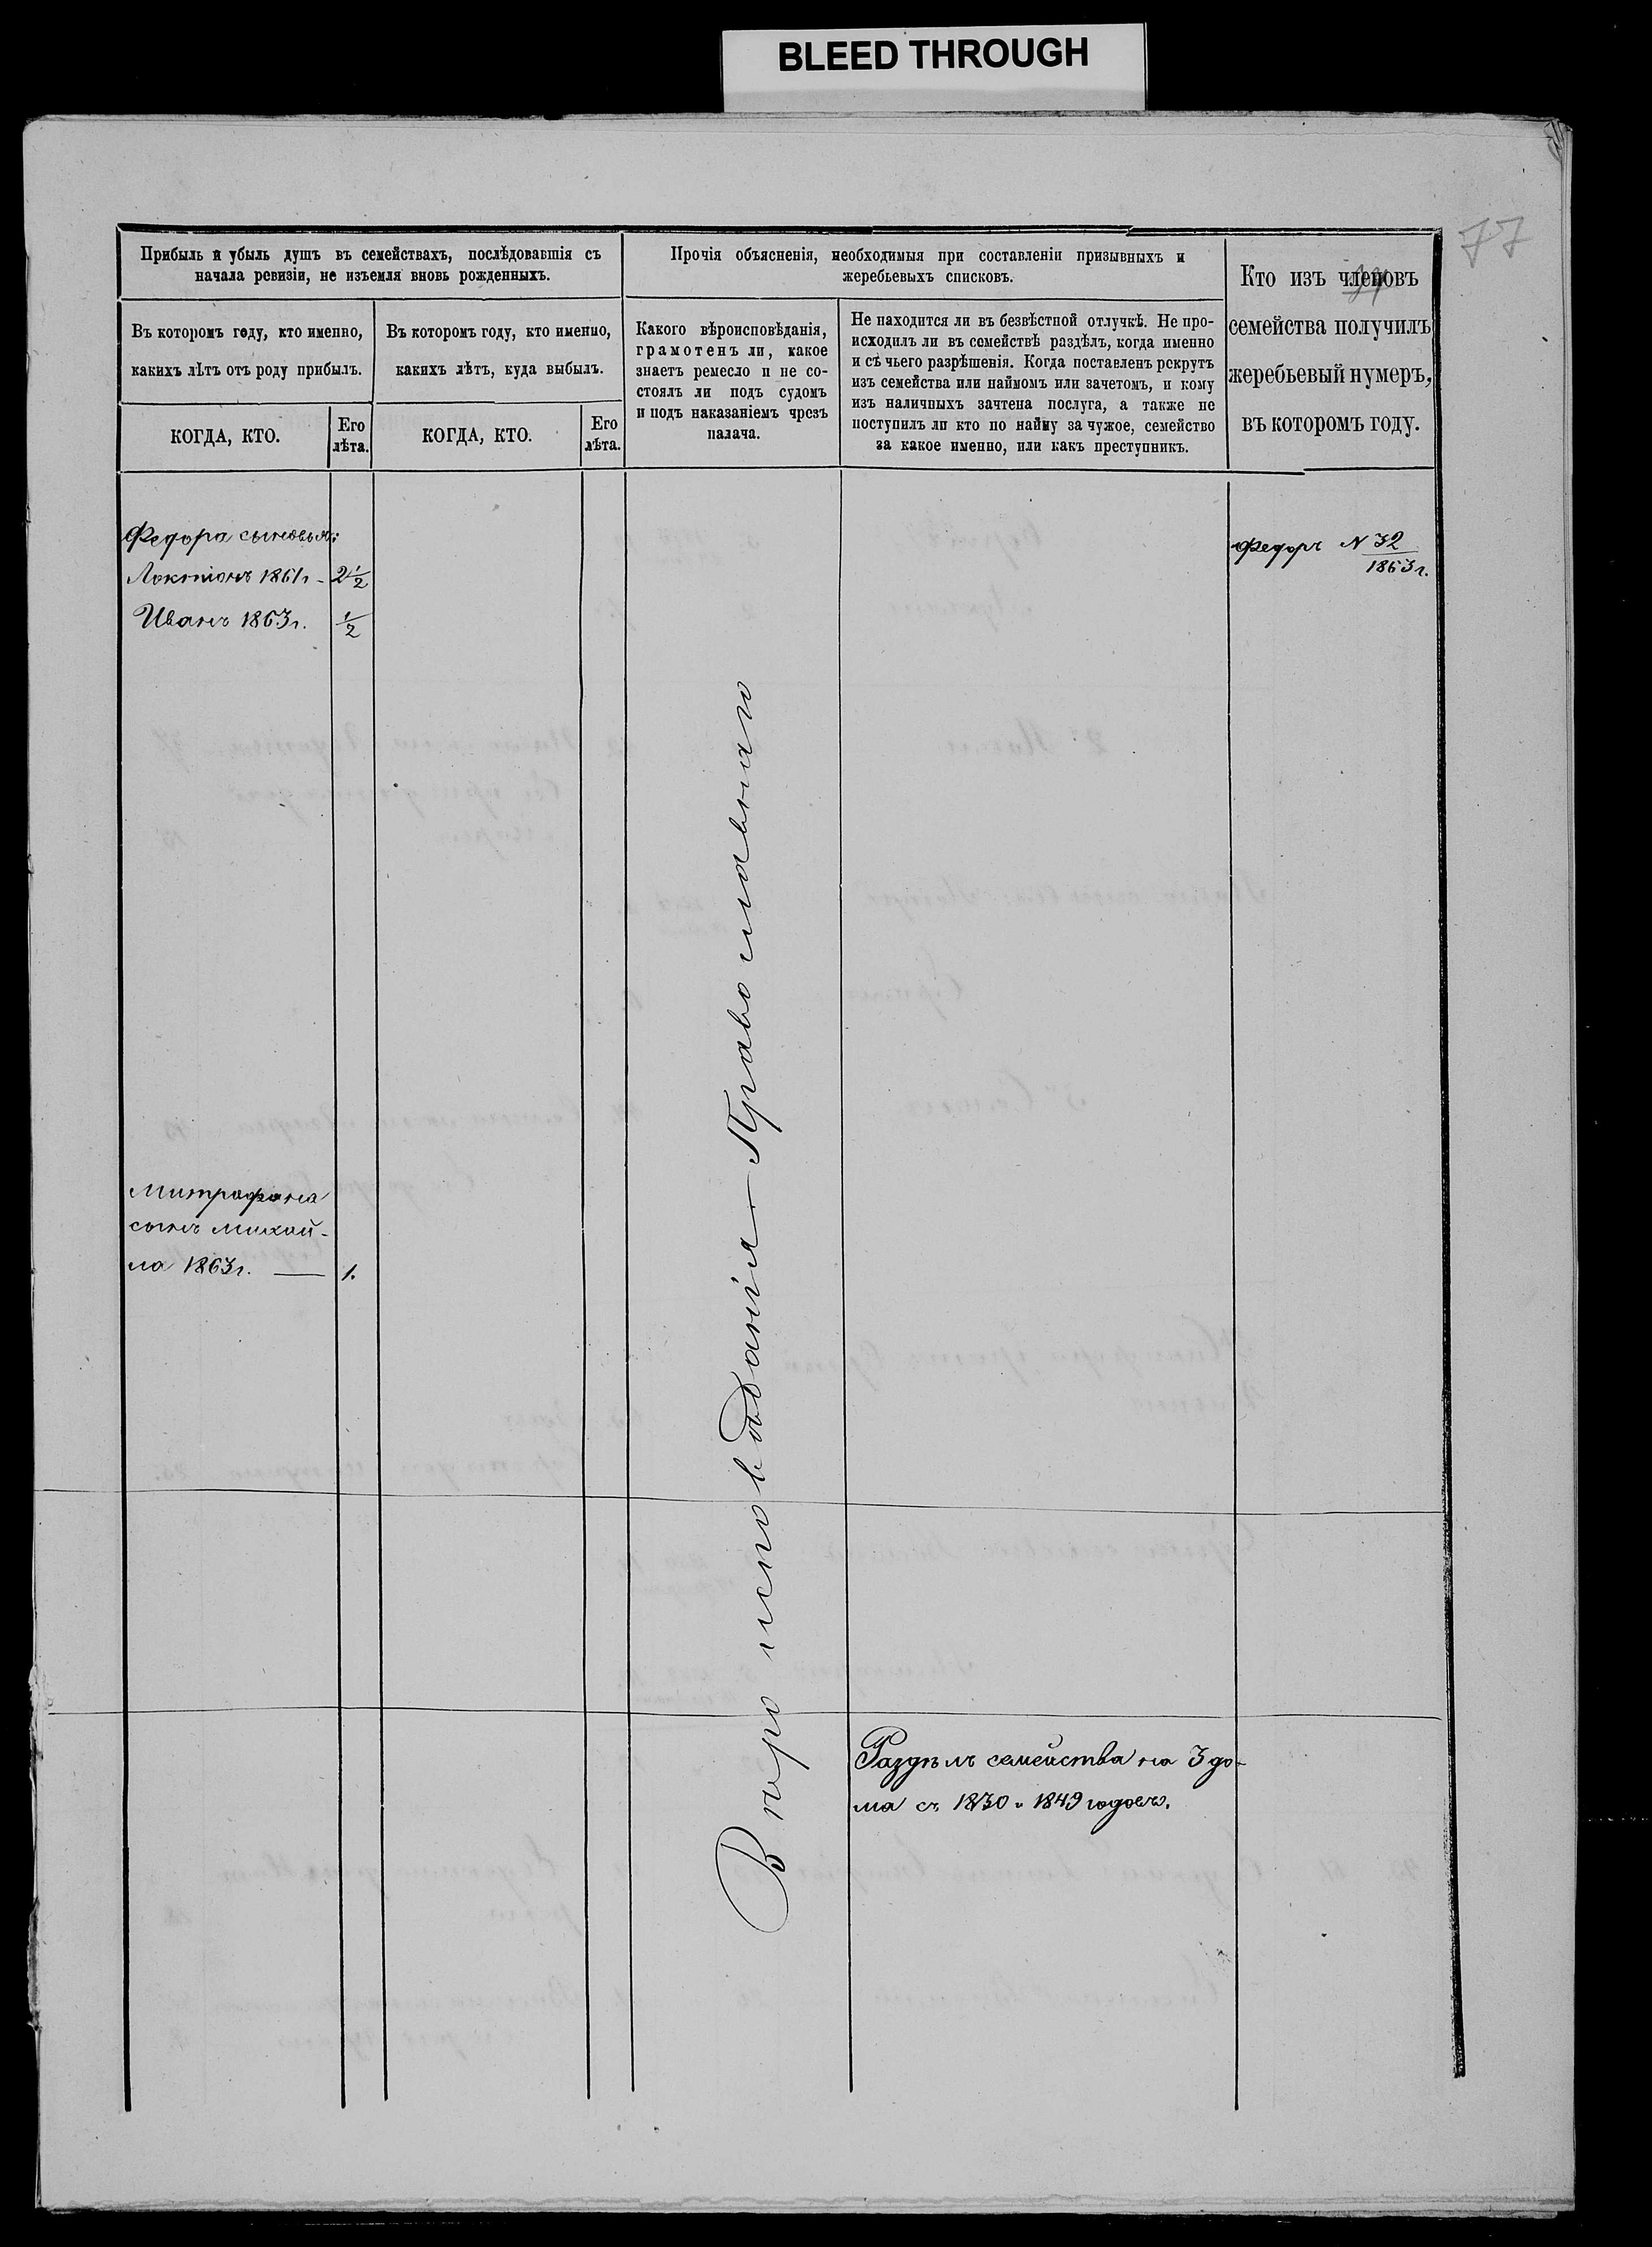 BLEED THROUGH
77
Прибыль и убыль душъ въ семействахъ, послѣдовавшія съ
начала ревизіи, не изъемля вновь рожденныхъ.
Прочія объясненія, необходимыя при составленіи призывныхъ и
жеребьевыхъ списковъ.
Кто изъ членовъ
семейства получилъ
жеребьевый нумеръ,
въ которомъ году.
Въ которомъ году, кто именно,
какихъ лѣтъ отъ роду прибылъ.
Въ которомъ году, кто именно,
какихъ лѣтъ, куда выбылъ.
Какого вѣроисповѣданія,
грамотенъ ли, какое
знаетъ ремесло и не со-
стоялъ ли подъ судомъ
и подъ наказаніемъ чрезъ
палача.
Не находится ли въ безвѣстной отлучкѣ. Не про-
исходилъ ли въ семействѣ раздѣлъ, когда именно
и съ чьего разрѣшенія. Когда поставленъ рекрутъ
изъ семейства или наймомъ или зачетомъ, и кому
изъ наличныхъ зачтена послуга, а также не
поступилъ ли кто по найму за чужое, семейство
за какое именно, или какъ преступникъ.
КОГДА, КТО.
Его
лѣта.
КОГДА, КТО.
Его
лѣта.
Федора сыновья:
Локтіонъ 1861г - 2 1/2
Иванъ 1863г. 1/2
Федоръ N 32
1863г.
Митрофана
сынъ Михай-
ла 1863г. — 1.
Вѣроисповѣданія - Православнаго
Раздѣлъ семейства на 3 до-
ма съ 1830 и 1849 годовъ.